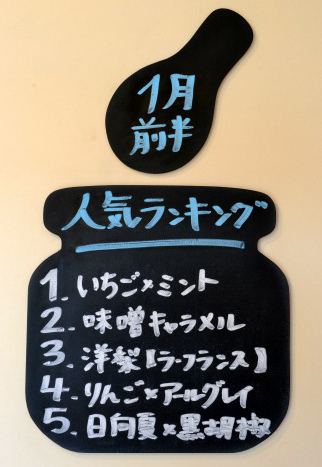 1月
前半
人気ランキング
1. いちご×ミント
2. 味噌キャラメル
3. 洋梨【ラ・フランス】
4. りんご×アールグレイ
5. 日向夏×黒胡椒